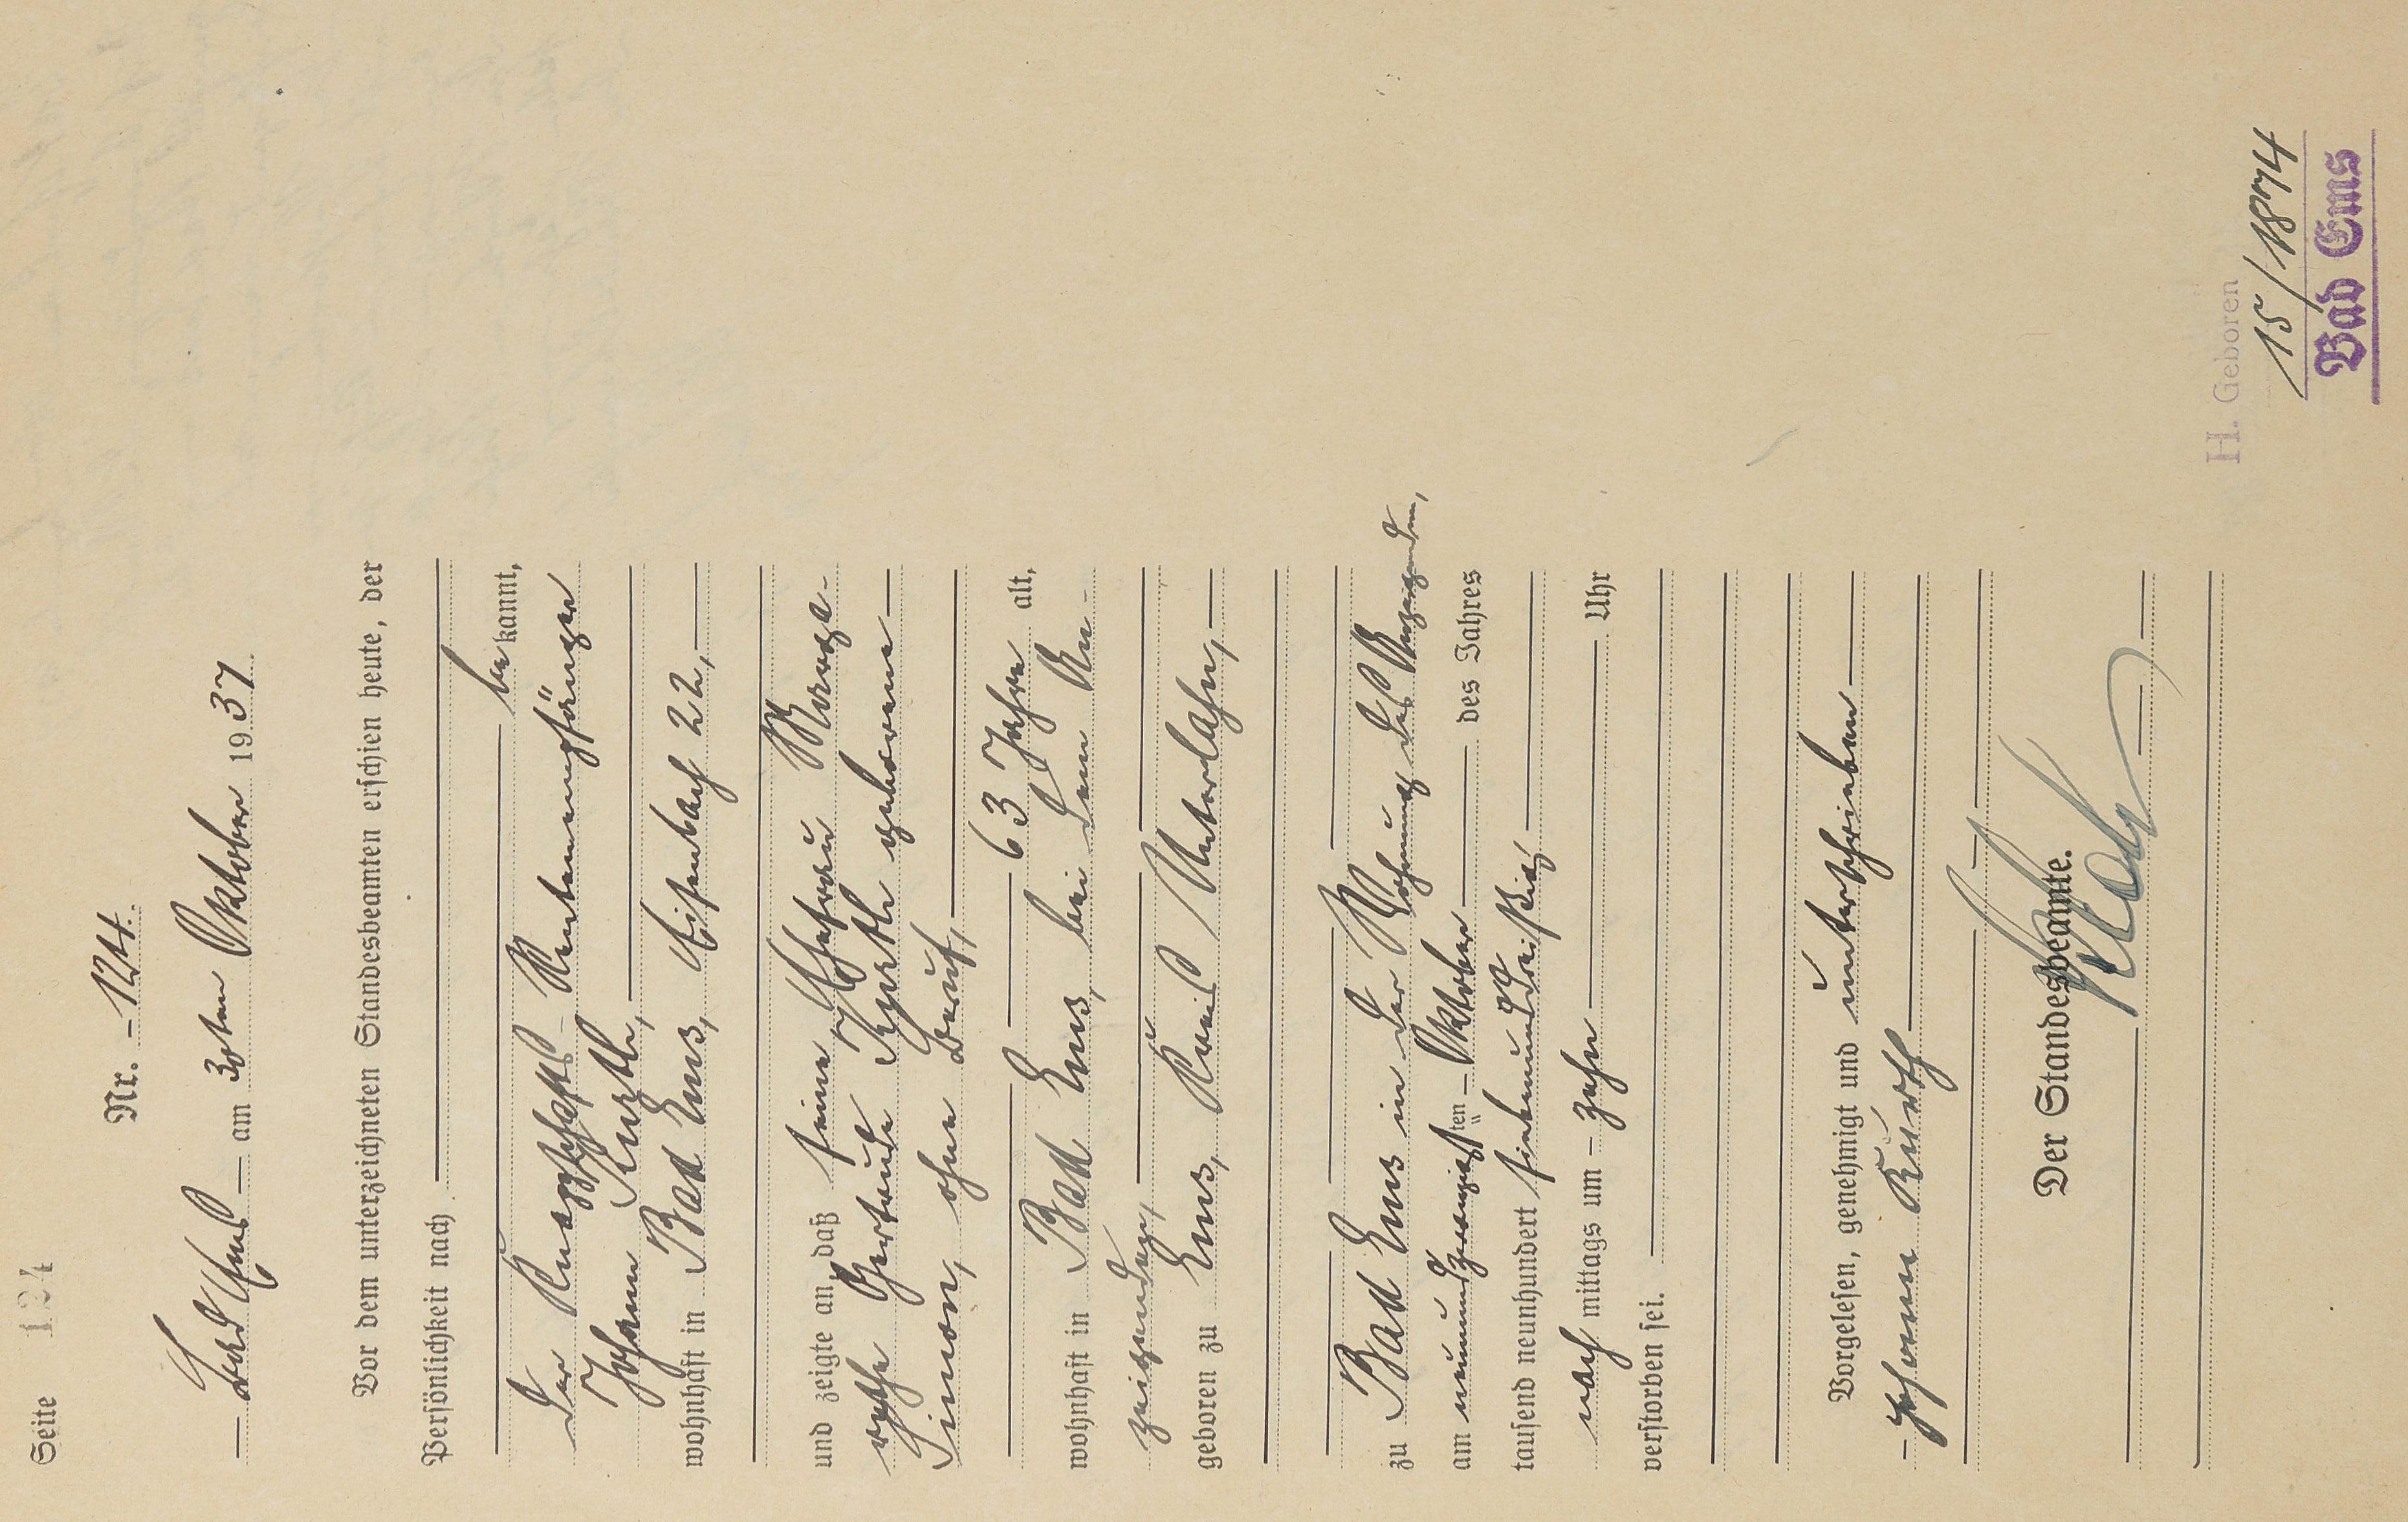 Seite 124
Nr. 124.
Bad Ems am 30ten Oktober 1937.
Vor dem unterzeichneten Standesbeamten erschien heute, der
Persönlichkeit nach
bekannt,
der Knappschafts-Rentenempfänger
Johann Kurth,
wohnhaft in Bad Ems, Eisenbach 22,
und zeigte an, daß seine Ehefrau Marga-
rethe Gertrude Kurth geborene
Simon, ohne Beruf,
63 Jahre alt,
wohnhaft in Bad Ems, bei dem An-
zeigenden,
geboren zu Ems, Kreis Unterlahn,
zu Bad Ems in der Wohnung des Anzeigenden,
am neunundzwanzigsten Oktober des Jahres
tausend neunhundert siebenunddreißig
nach mittags um zehn Uhr
verstorben sei.
Vorgelesen, genehmigt und unterschrieben
Johann Kurth
Der Standesbeamte.
H. Geboren
15/1874
Bad Ems